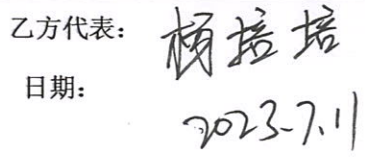 乙方代表：杨培培
日期：
2023.7.11